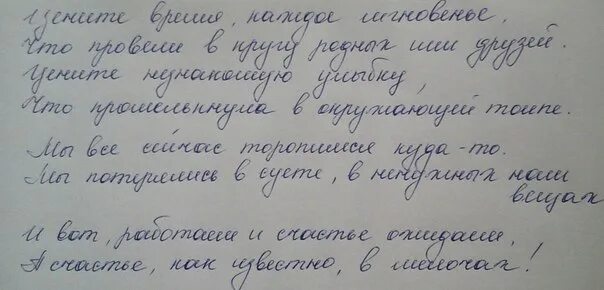 Цените время, каждое мгновенье,
Что провели в кругу родных или друзей.
Цените незнакомую улыбку,
Что промелькнула в окружающей толпе.
Мы все сейчас торопимся куда-то.
Мы потерялись в суете, в ненужных нам
вещах
И вот, работаем и счастье ожидаем,
А счастье, как известно, в мелочах!